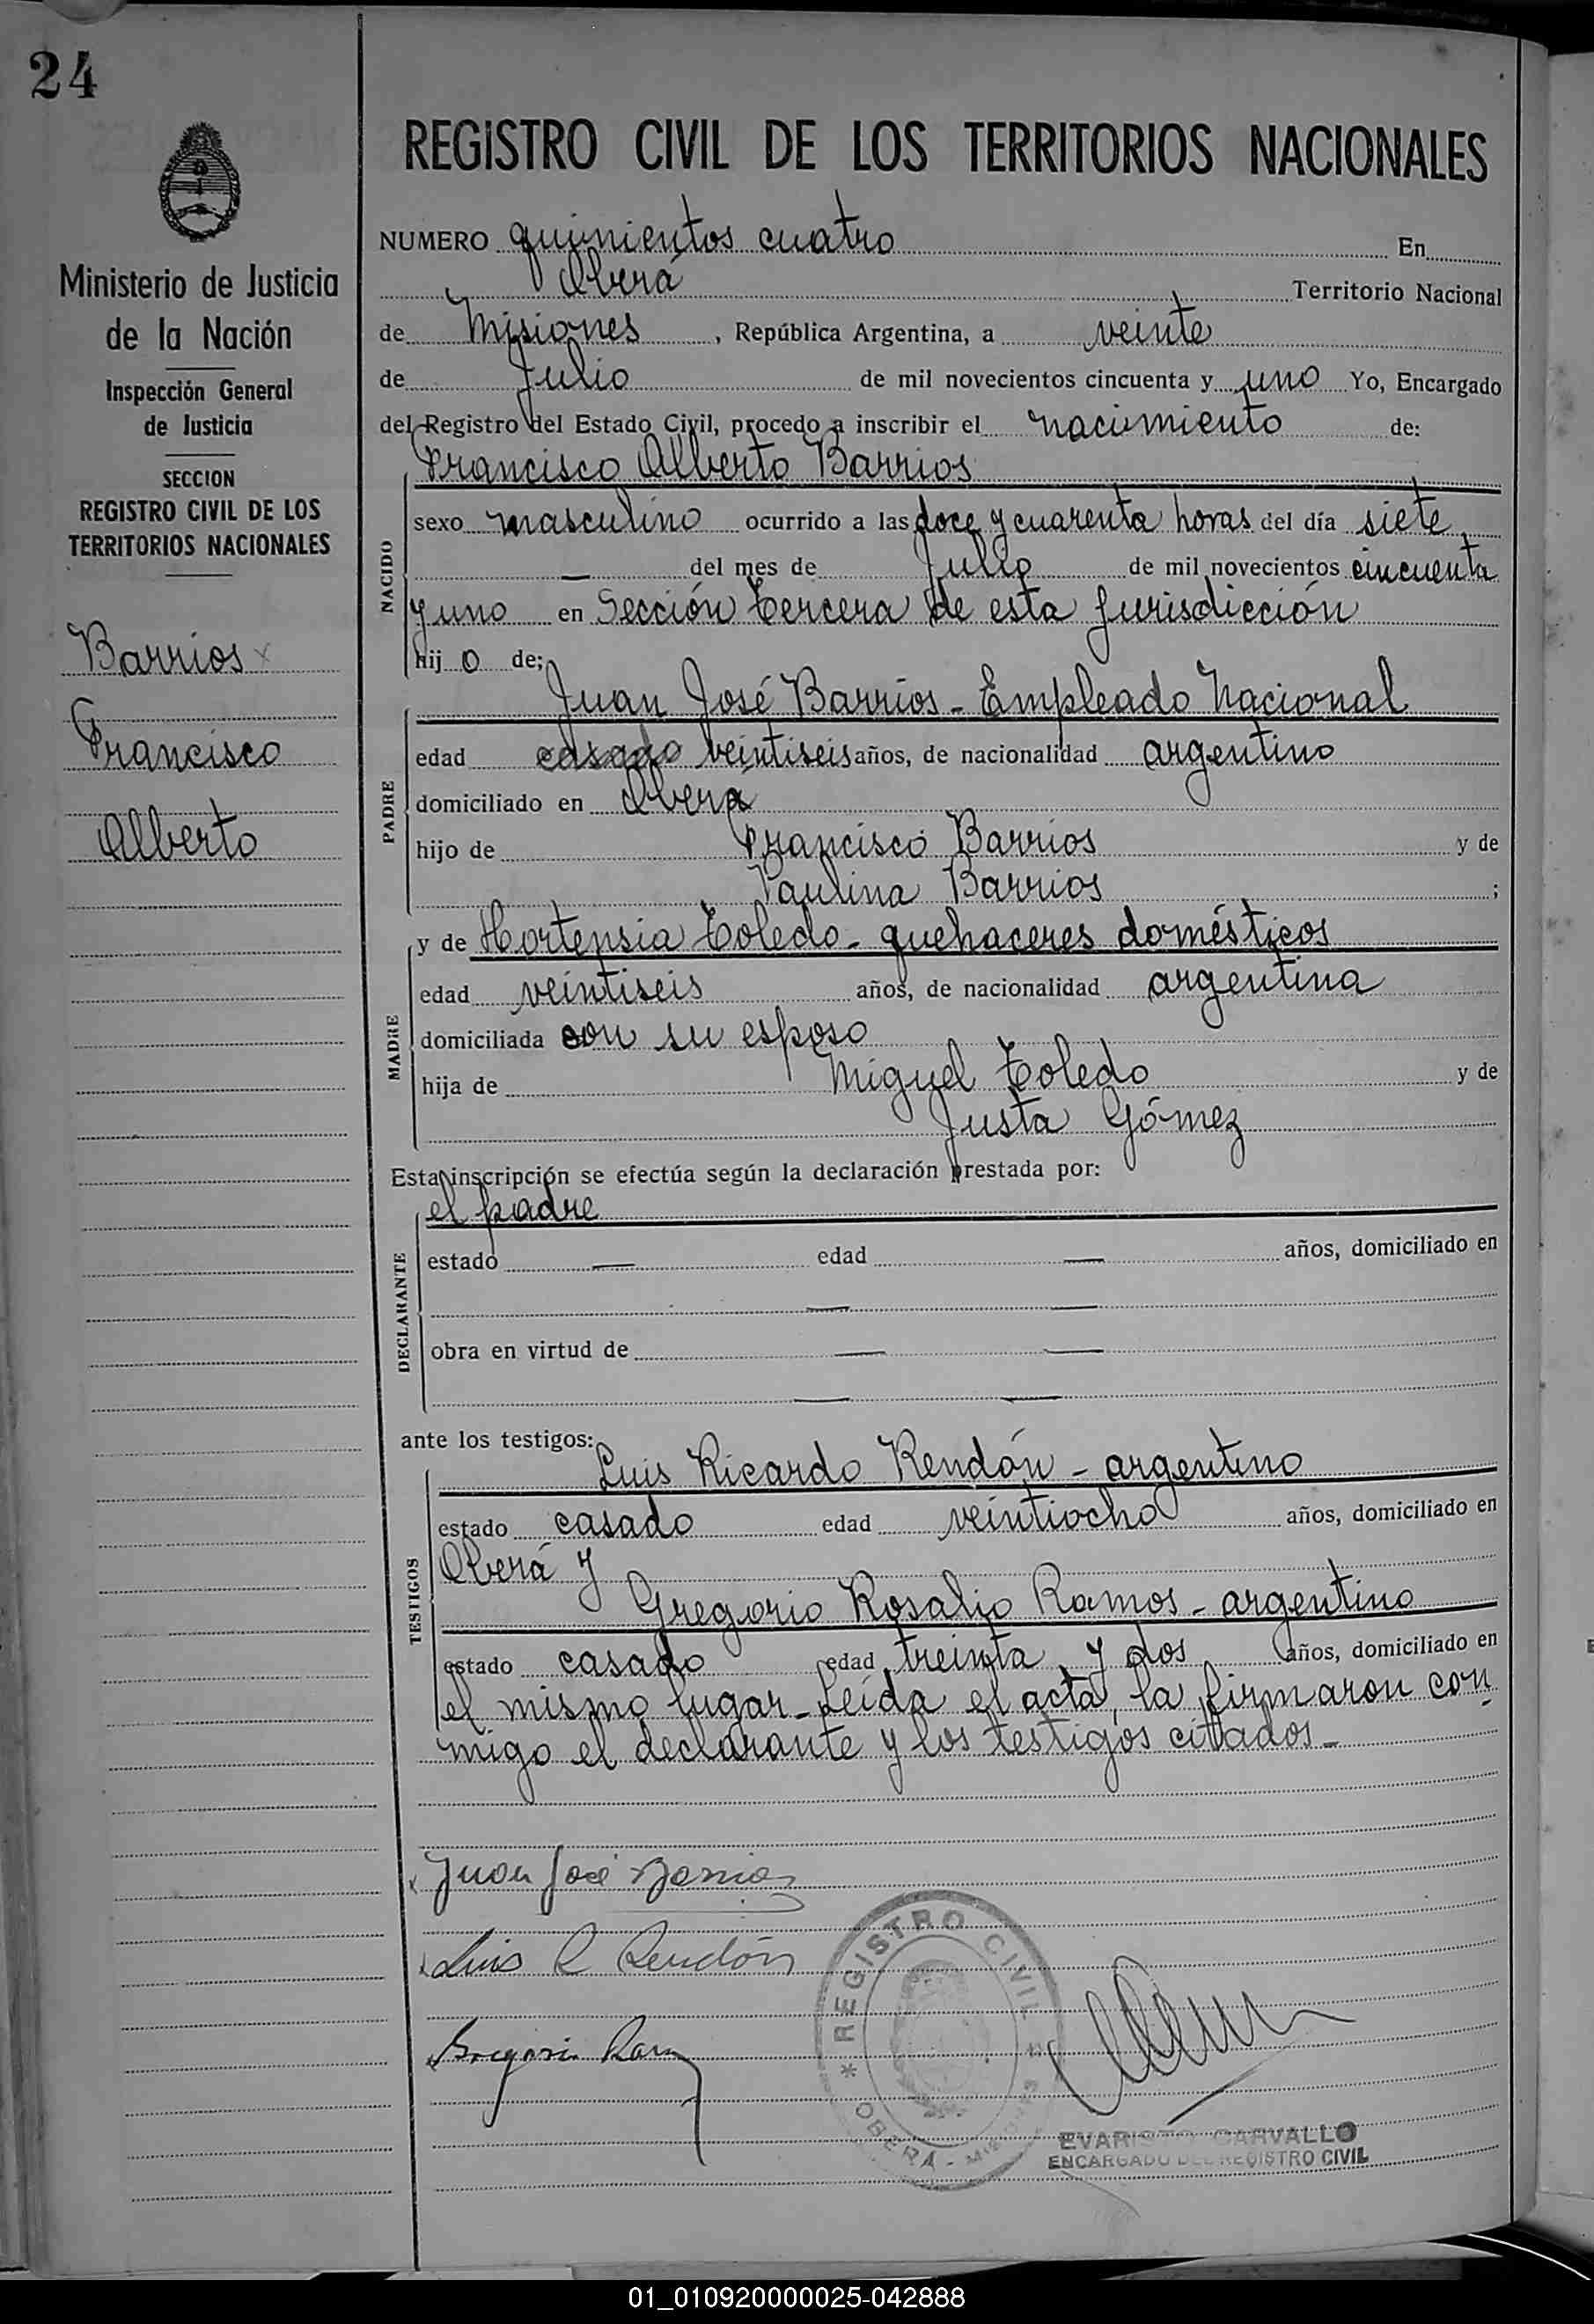 24
Ministerio de Justicia
de la Nación
Inspección General
de Justicia
SECCION
REGISTRO CIVIL DE LOS
TERRITORIOS NACIONALES
Barrios
Francisco
Alberto
REGISTRO CIVIL DE LOS TERRITORIOS NACIONALES
NUMERO quinientos cuatro En
Oberá Territorio Nacional
de Misiones, República Argentina, a veinte
de Julio de mil novecientos cincuenta y uno Yo, Encargado
del Registro del Estado Civil, procedo a inscribir el nacimiento de:
Francisco Alberto Barrios
NACIDO
sexo masculino ocurrido a las doce y cuarenta horas del día siete
— del mes de Julio de mil novecientos cincuenta
y uno en Sección Tercera de esta Jurisdicción
hijo de;
Juan José Barrios - Empleado Nacional
PADRE
edad casado veintiseis años, de nacionalidad argentino
domiciliado en Oberá
hijo de Francisco Barrios y de
Paulina Barrios ;
y de Hortensia Toledo - quehaceres domésticos
MADRE
edad veintiseis años, de nacionalidad argentina
domiciliada con su esposo
hija de Miguel Toledo y de
Justa Gómez
Esta inscripción se efectúa según la declaración prestada por:
el padre
DECLARANTE
estado — edad — años, domiciliado en
— —
obra en virtud de — —
— —
ante los testigos:
Luis Ricardo Rendón - argentino
TESTIGOS
estado casado edad veintiocho años, domiciliado en
Oberá y
Gregorio Rosalio Ramos - argentino
estado casado edad treinta y dos años, domiciliado en
el mismo lugar - Leída el acta, la firmaron con
migo el declarante y los testigos citados -
Juan José Barrios
Luis R Rendón
Gregorio Ram
* REGISTRO CIVIL *
OBERA - MISIONES
EVARISTO CARVALLO
ENCARGADO DEL REGISTRO CIVIL
01_010920000025-042888